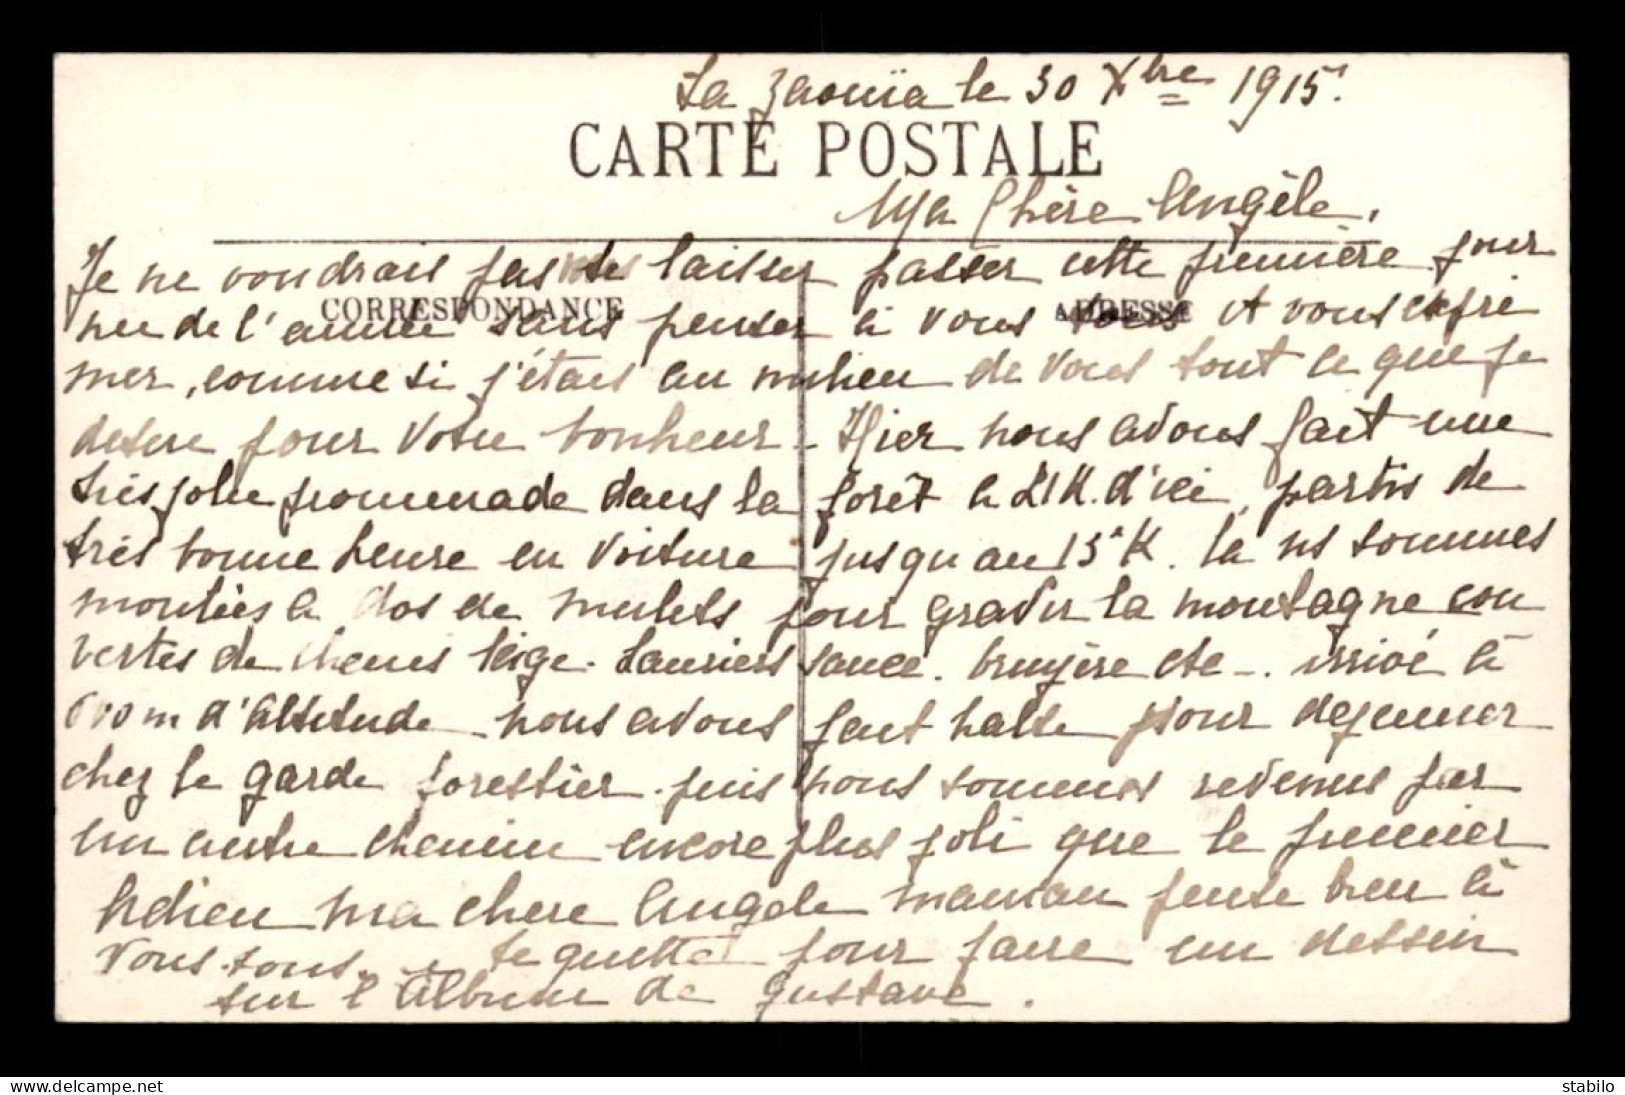 La Zaouïa le 30 Xbre 1915.
CARTE POSTALE
Ma Chère Angèle,
Je ne voudrais pas laisser passer cette première jour
CORRESPONDANCE
ADRESSE
née de l'année sans penser à vous et vous expri
mer, comme si j'étais au milieu de vous tout ce que je
désire pour votre bonheur - Hier nous avons fait une
très jolie promenade dans la forêt à 21 K. d'ici, partis de
très bonne heure en voiture jusqu'au 15e K. la ns sommes
montées à dos de mulets pour gravir la montagne cou
vertes de chenes liège. Lauriers sauce. bruyère etc -. arrivé à
600 m d'altitude nous avons fait halte pour dejeuner
chez le garde forestier. puis nous sommes revenus par
un autre chemin encore plus joli que le premier
Adieu ma chere Angele maman pense bien à
vous tous. . te quitte pour faire un dessin
sur l'Album de Gustave.
stabilo
www.delcampe.net